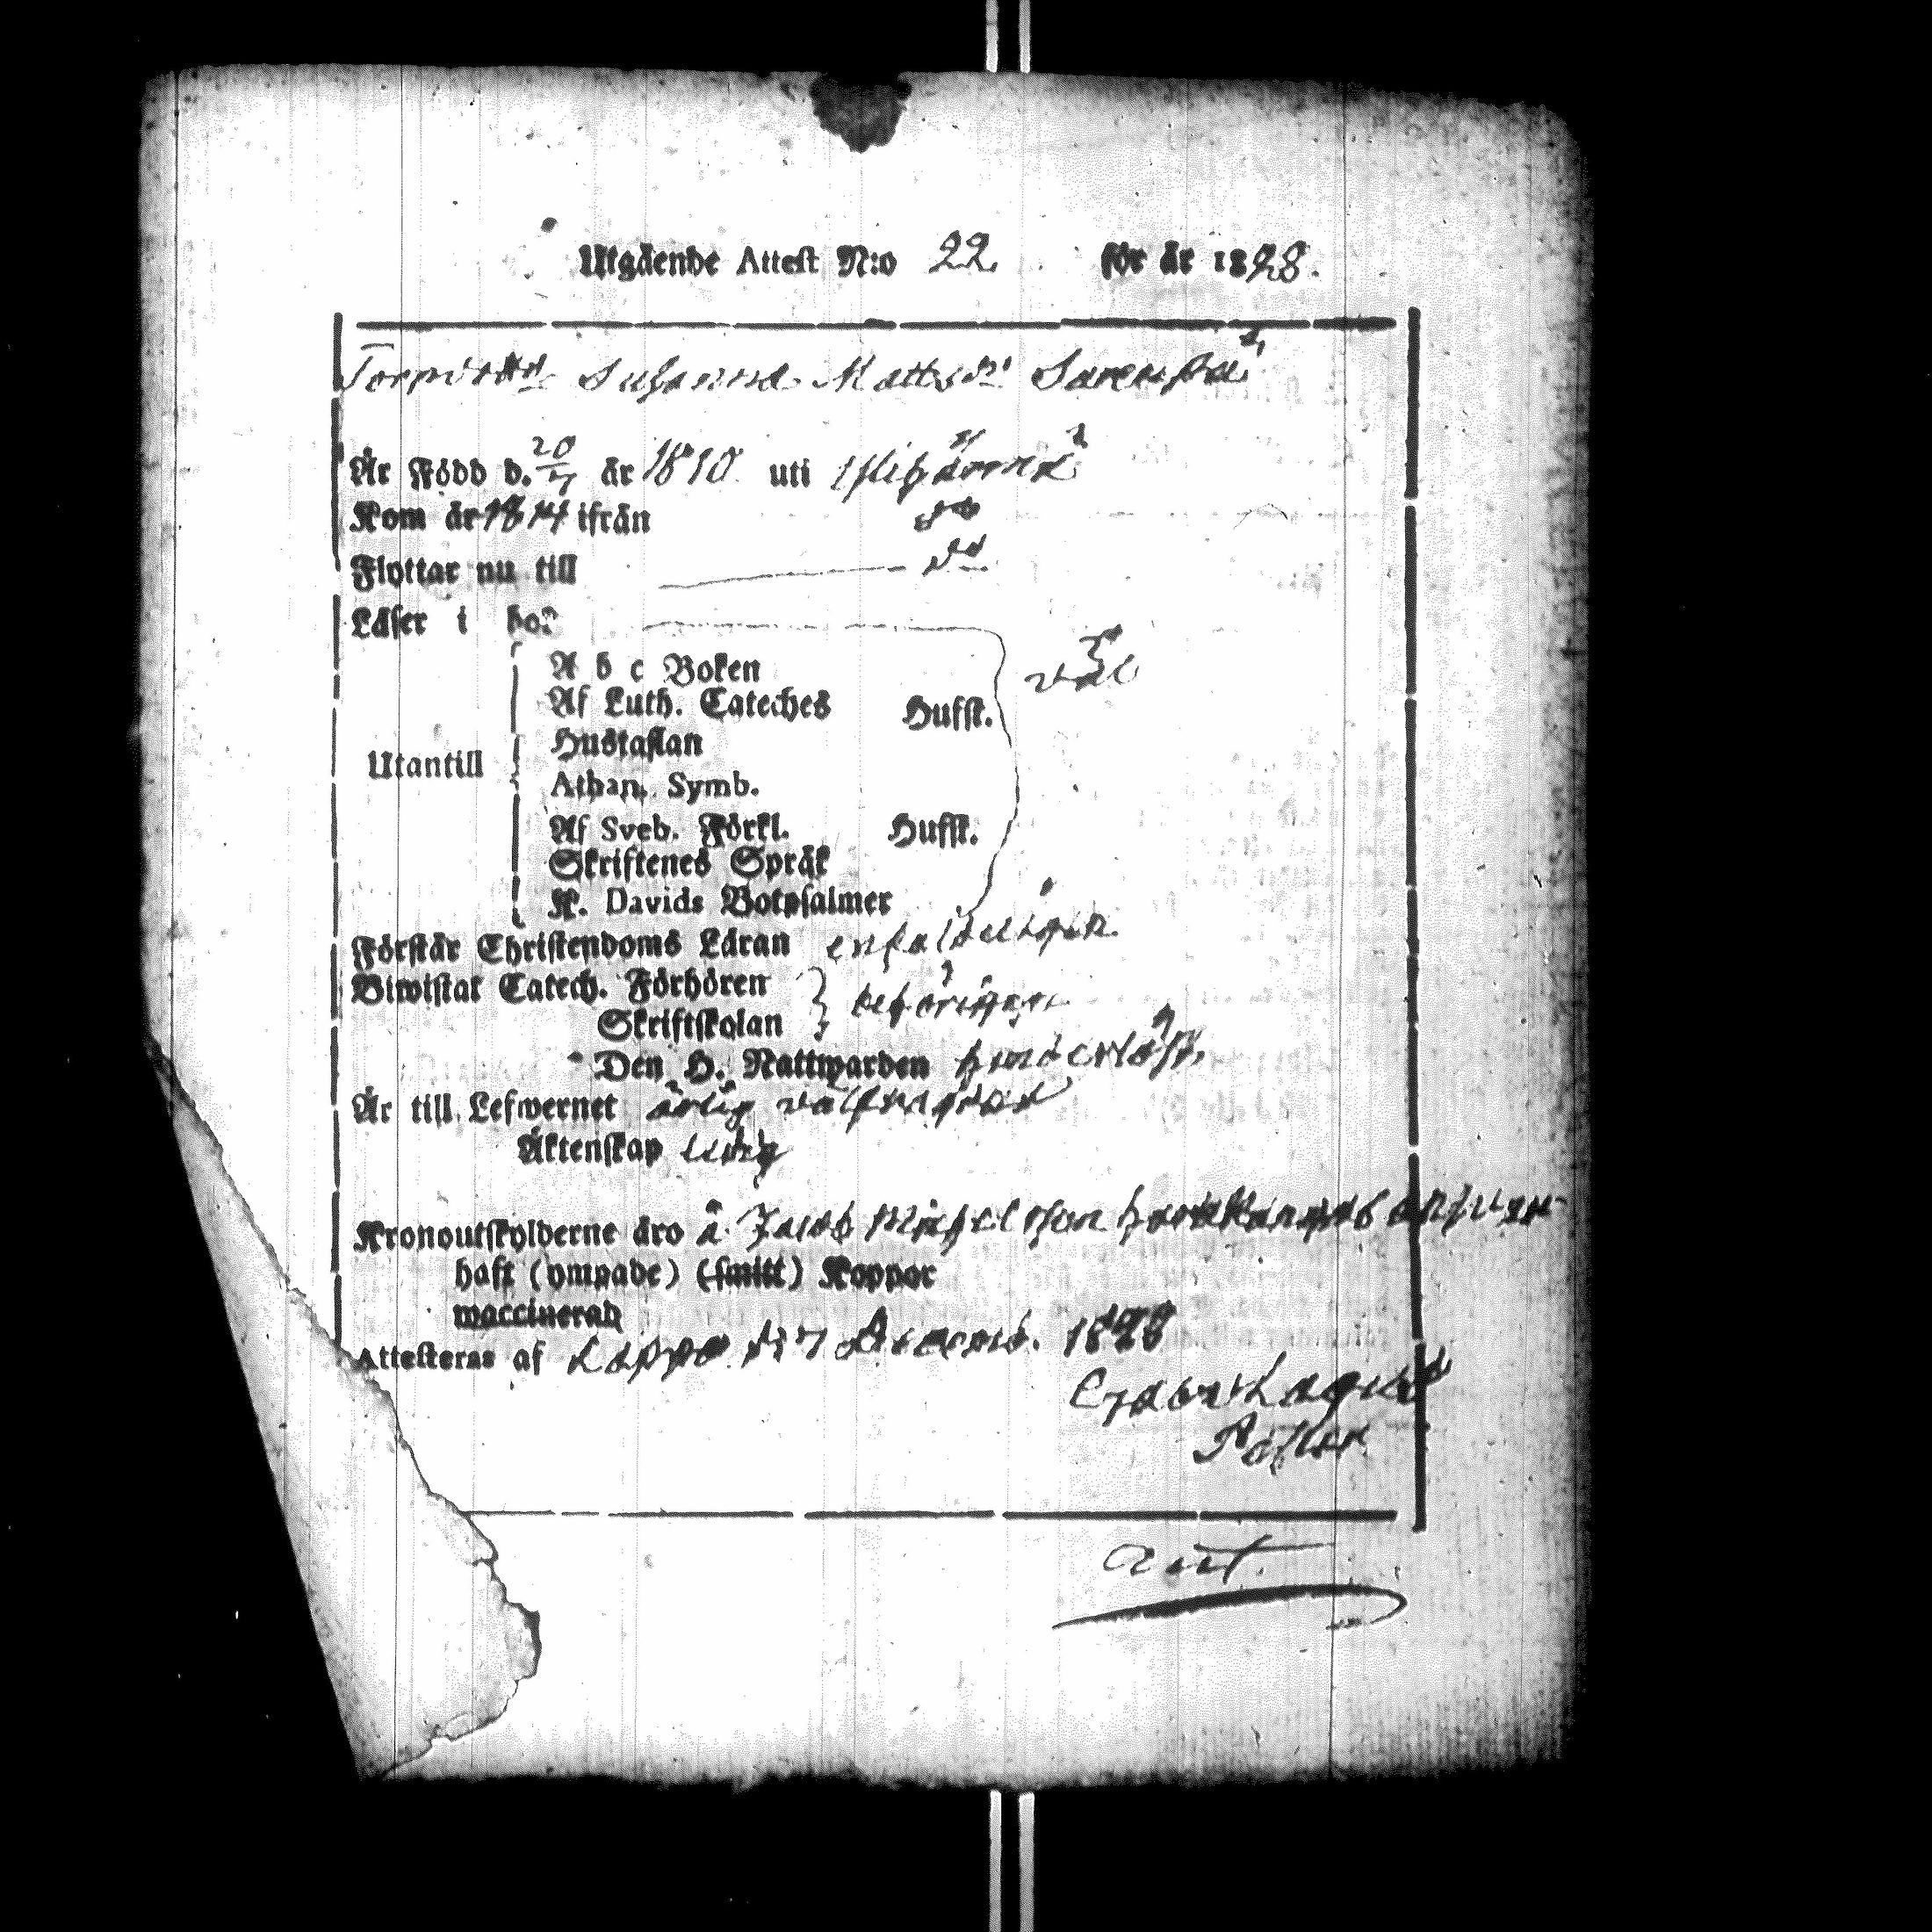 Utgående Attest N:o 22 för år 1828.
Susanna Mattsdr
Är Född d. 20/7 år 1810 uti
Kom år 1814 ifrån do
Flyttar nu till do
Läser i bok
A b c Boken väl
Af Luth. Cateches Hufst.
Hustaflan
Utantill
Athan. Symb.
Af Sveb. Förkl. Hufst.
Skriftenes Språk
K. Davids Botpsalmer
Förstår Christendoms Läran enfaldeligen
Biwistat Catech. Förhören
Skriftskolan behörigen
Den H. Nattwarden
Är till Lefwernet ärlig välfrägdad
Äktenskap ledig
Kronoutskylderne äro å Jacob Michelsson
haft (ympade) (smitt) Koppor
waccinerad
Attesteras af Lappo d. 7 Decemb. 1828
Pastor